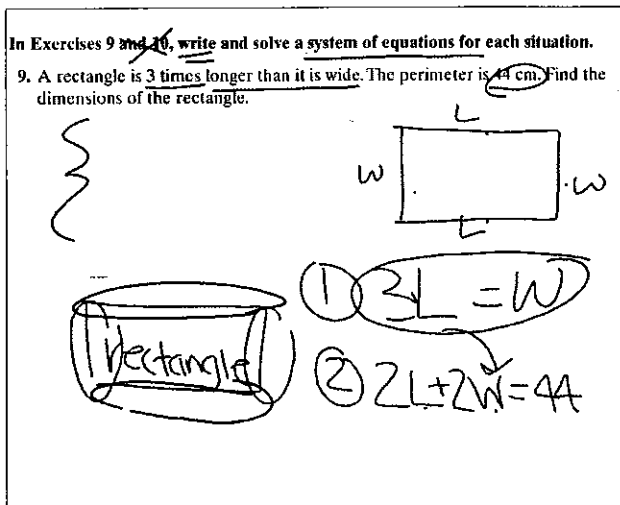 In Exercises 9 and 10, write and solve a system of equations for each situation.
9. A rectangle is 3 times longer than it is wide. The perimeter is 44 cm. Find the
dimensions of the rectangle.
L
W
W
L
① 3L = W
rectangle
② 2L+2W=44